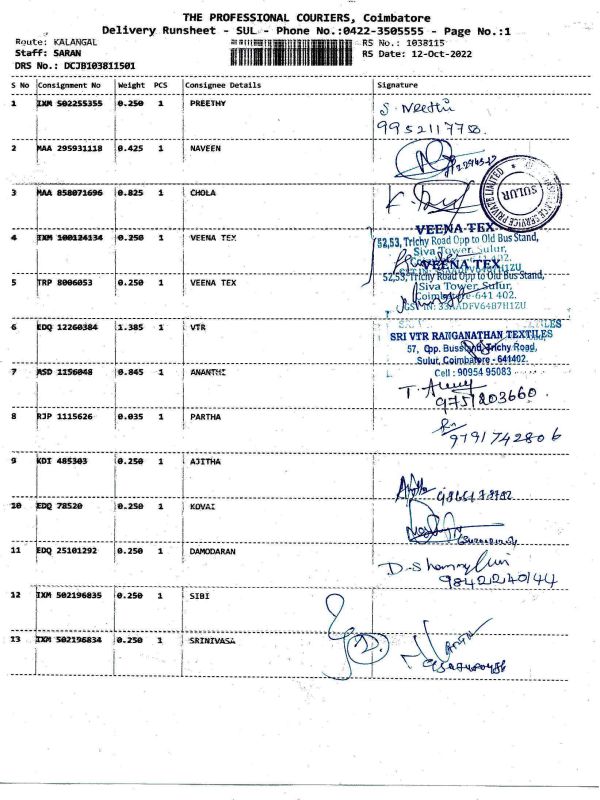 THE PROFESSIONAL COURIERS, Coimbatore
Delivery Runsheet - SUL - Phone No.:0422-3505555 - Page No.:1
Route: KALANGAL RS No.: 1038115
Staff: SARAN RS Date: 12-Oct-2022
DRS No.: DCJB103811501
S No Consignment No Weight PCS Consignee Details Signature
1 IXM 502255355 0.250 1 PREETHY
S. Neethu
9952117750
2 MAA 295931118 0.425 1 NAVEEN
3 MAA 858071696 0.825 1 CHOLA
SULUR
4 IXM 100124134 0.250 1 VEENA TEX
VEENA TEX
52,53, Trichy Road Opp to Old Bus Stand,
Siva Tower, Sulur,
5 TRP 8006053 0.250 1 VEENA TEX
VEENA TEX
52,53, Trichy Road Opp to Old Bus Stand,
Siva Tower, Sulur,
Coimbatore-641 402.
6 EDQ 12260384 1.385 1 VTR
SRI VTR RANGANATHAN TEXTILES
57, Opp. Busstand, Trichy Road,
Sulur, Coimbatore - 641402.
Cell : 90954 95083
7 ASD 1156048 0.845 1 ANANTHI
9751203660
8 RJP 1115626 0.035 1 PARTHA
9791742806
9 KDI 485303 0.250 1 AJITHA
10 EDQ 78520 0.250 1 KOVAI
11 EDQ 25101292 0.250 1 DAMODARAN
9842240144
12 IXM 502196835 0.250 1 SIBI
13 IXM 502196834 0.250 1 SRINIVASA